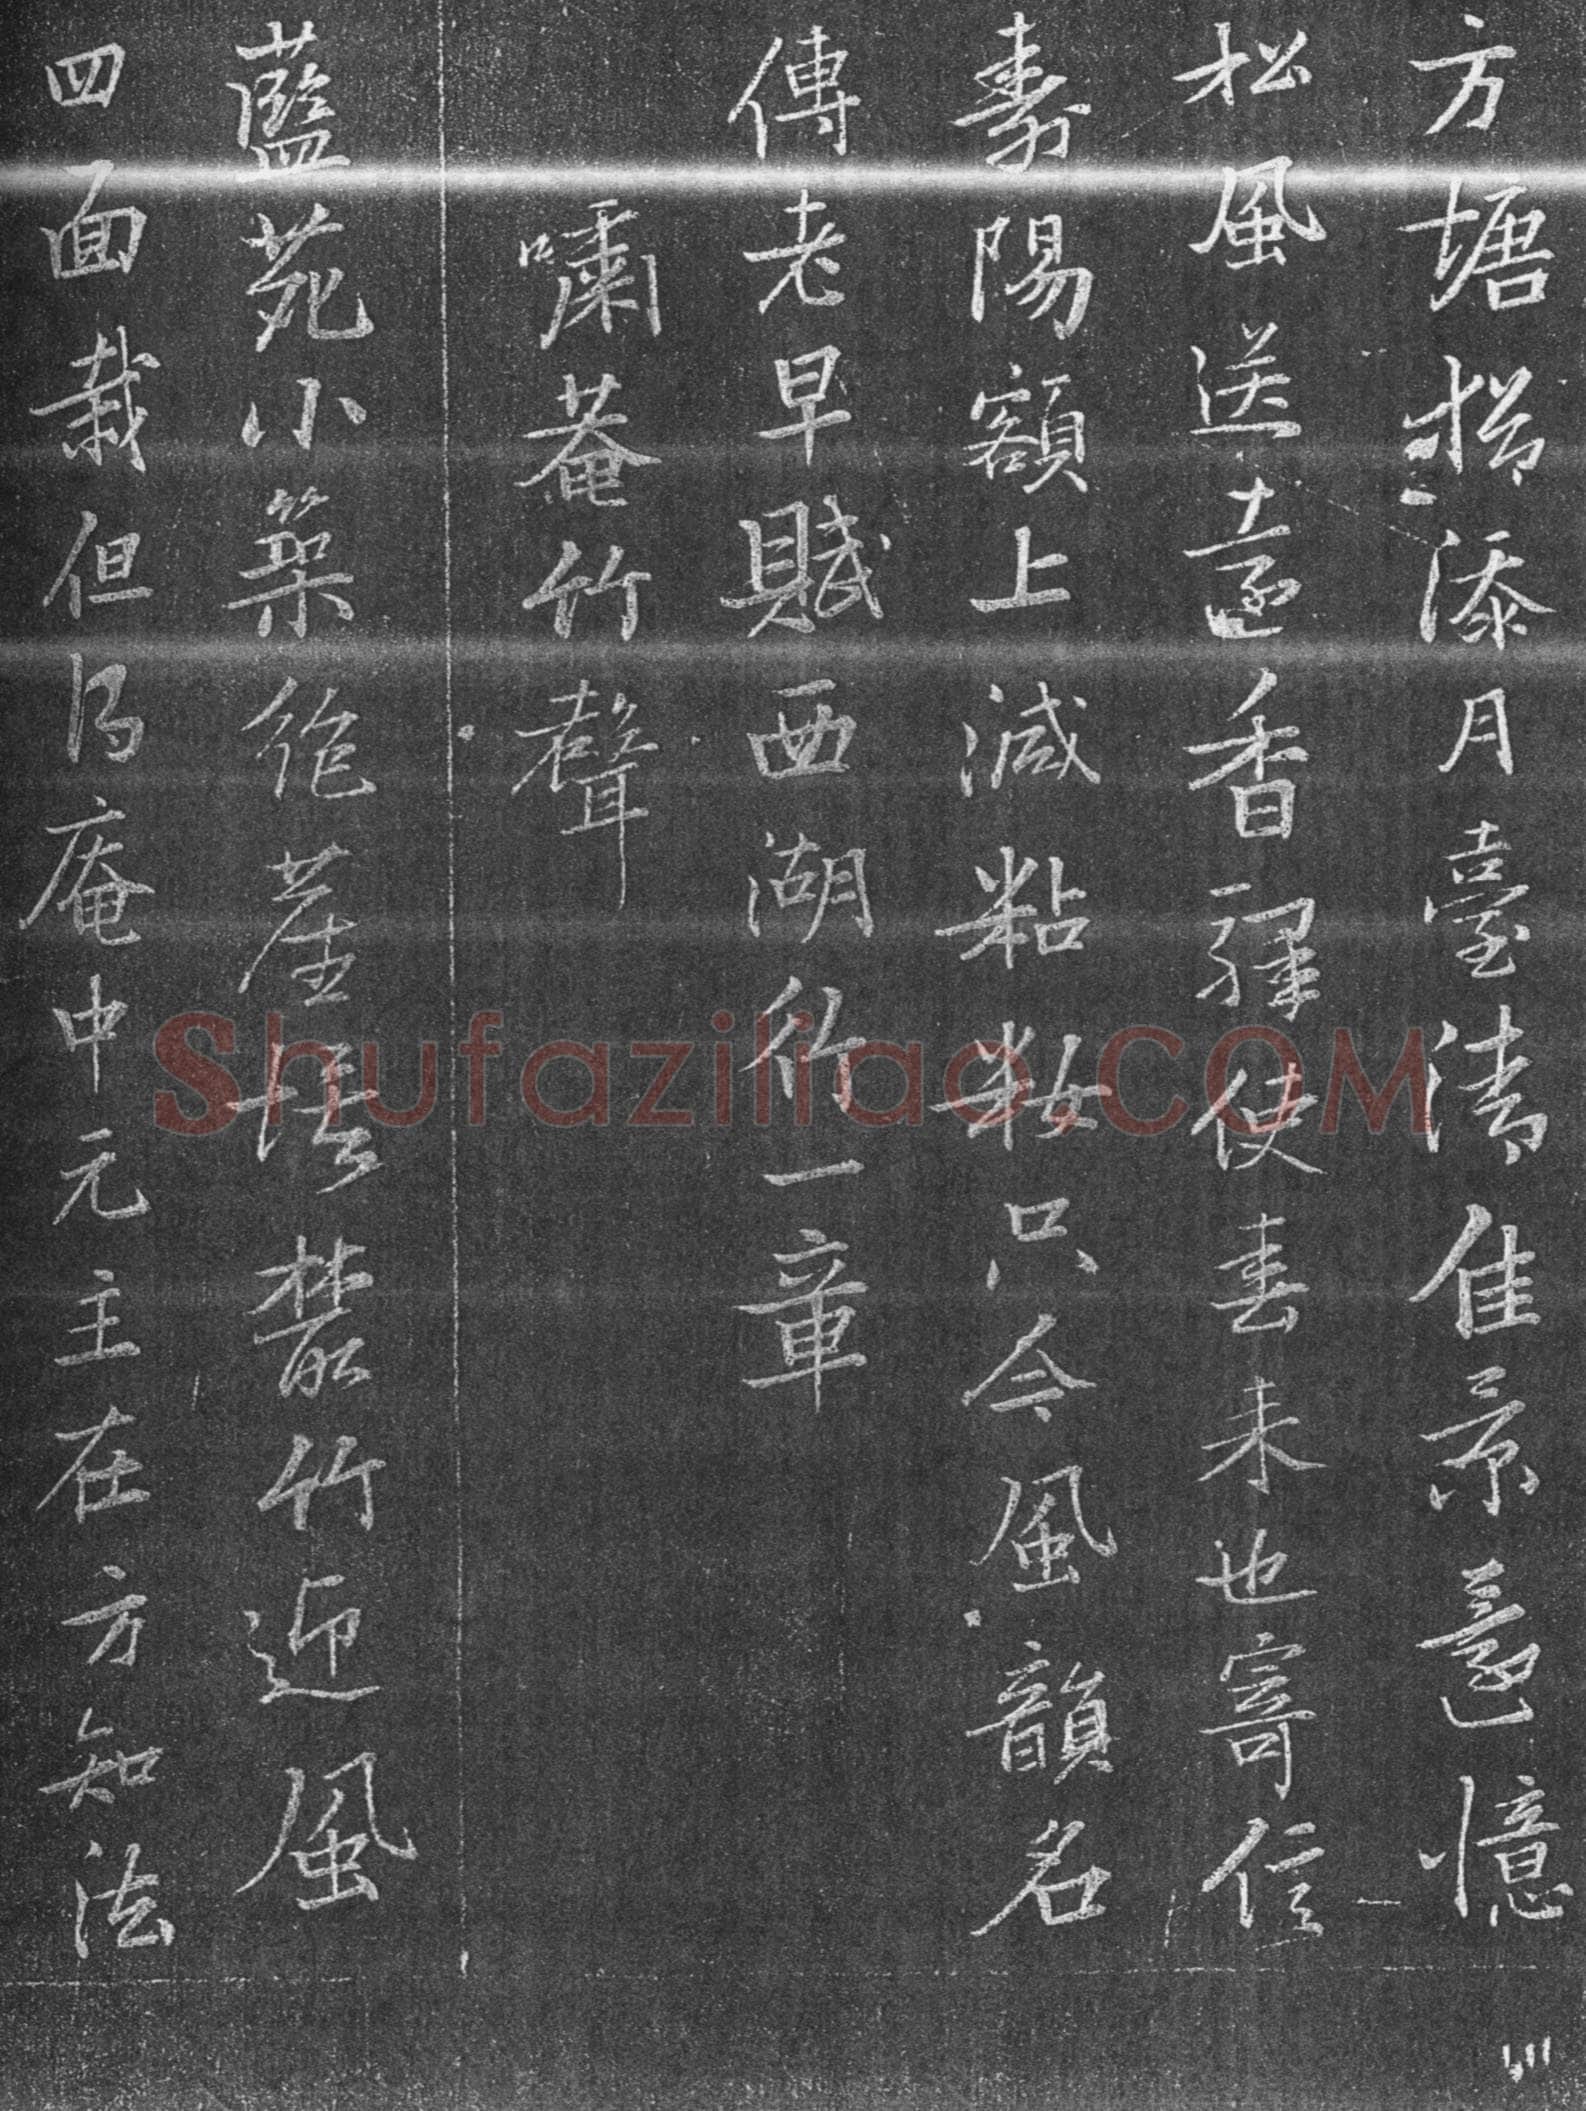 方塘松添月臺清佳景還憶
松風送遠香驛使春來也寄信
壽陽額上減粘妝只今風韻名
傳老早賦西湖竹一章
嘯菴竹聲
藍苑小築絕崖㙮叢竹迎風
四面栽但得庵中元主在方知法
Shufaziliao.COM